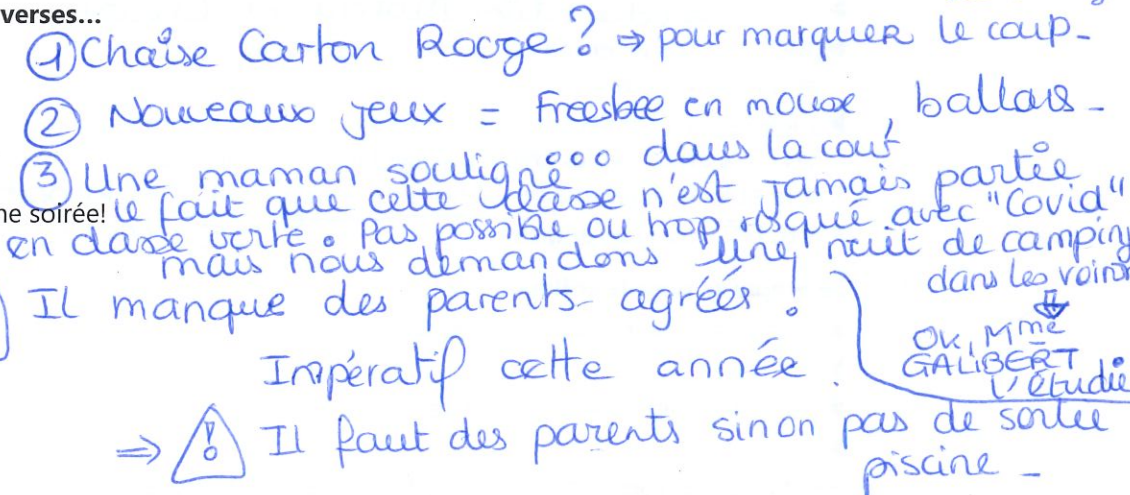 verses...
① Chaise Carton Rouge? ⇒ pour marquer le coup-
② Nouveaux jeux = Freesbee en mousse, ballons-
③ Une maman souligne... dans la cour
ne soirée! le fait que cette classe n'est jamais partie
en classe verte. Pas possible ou trop risqué avec "Covid"
mais nous demandons une nuit de camping
dans les
Il manque des parents agréés!
Ok, Mme
GALIBERT
l'étudie
Impératif cette année.
⇒ ⚠ Il faut des parents sinon pas de sortie
piscine-